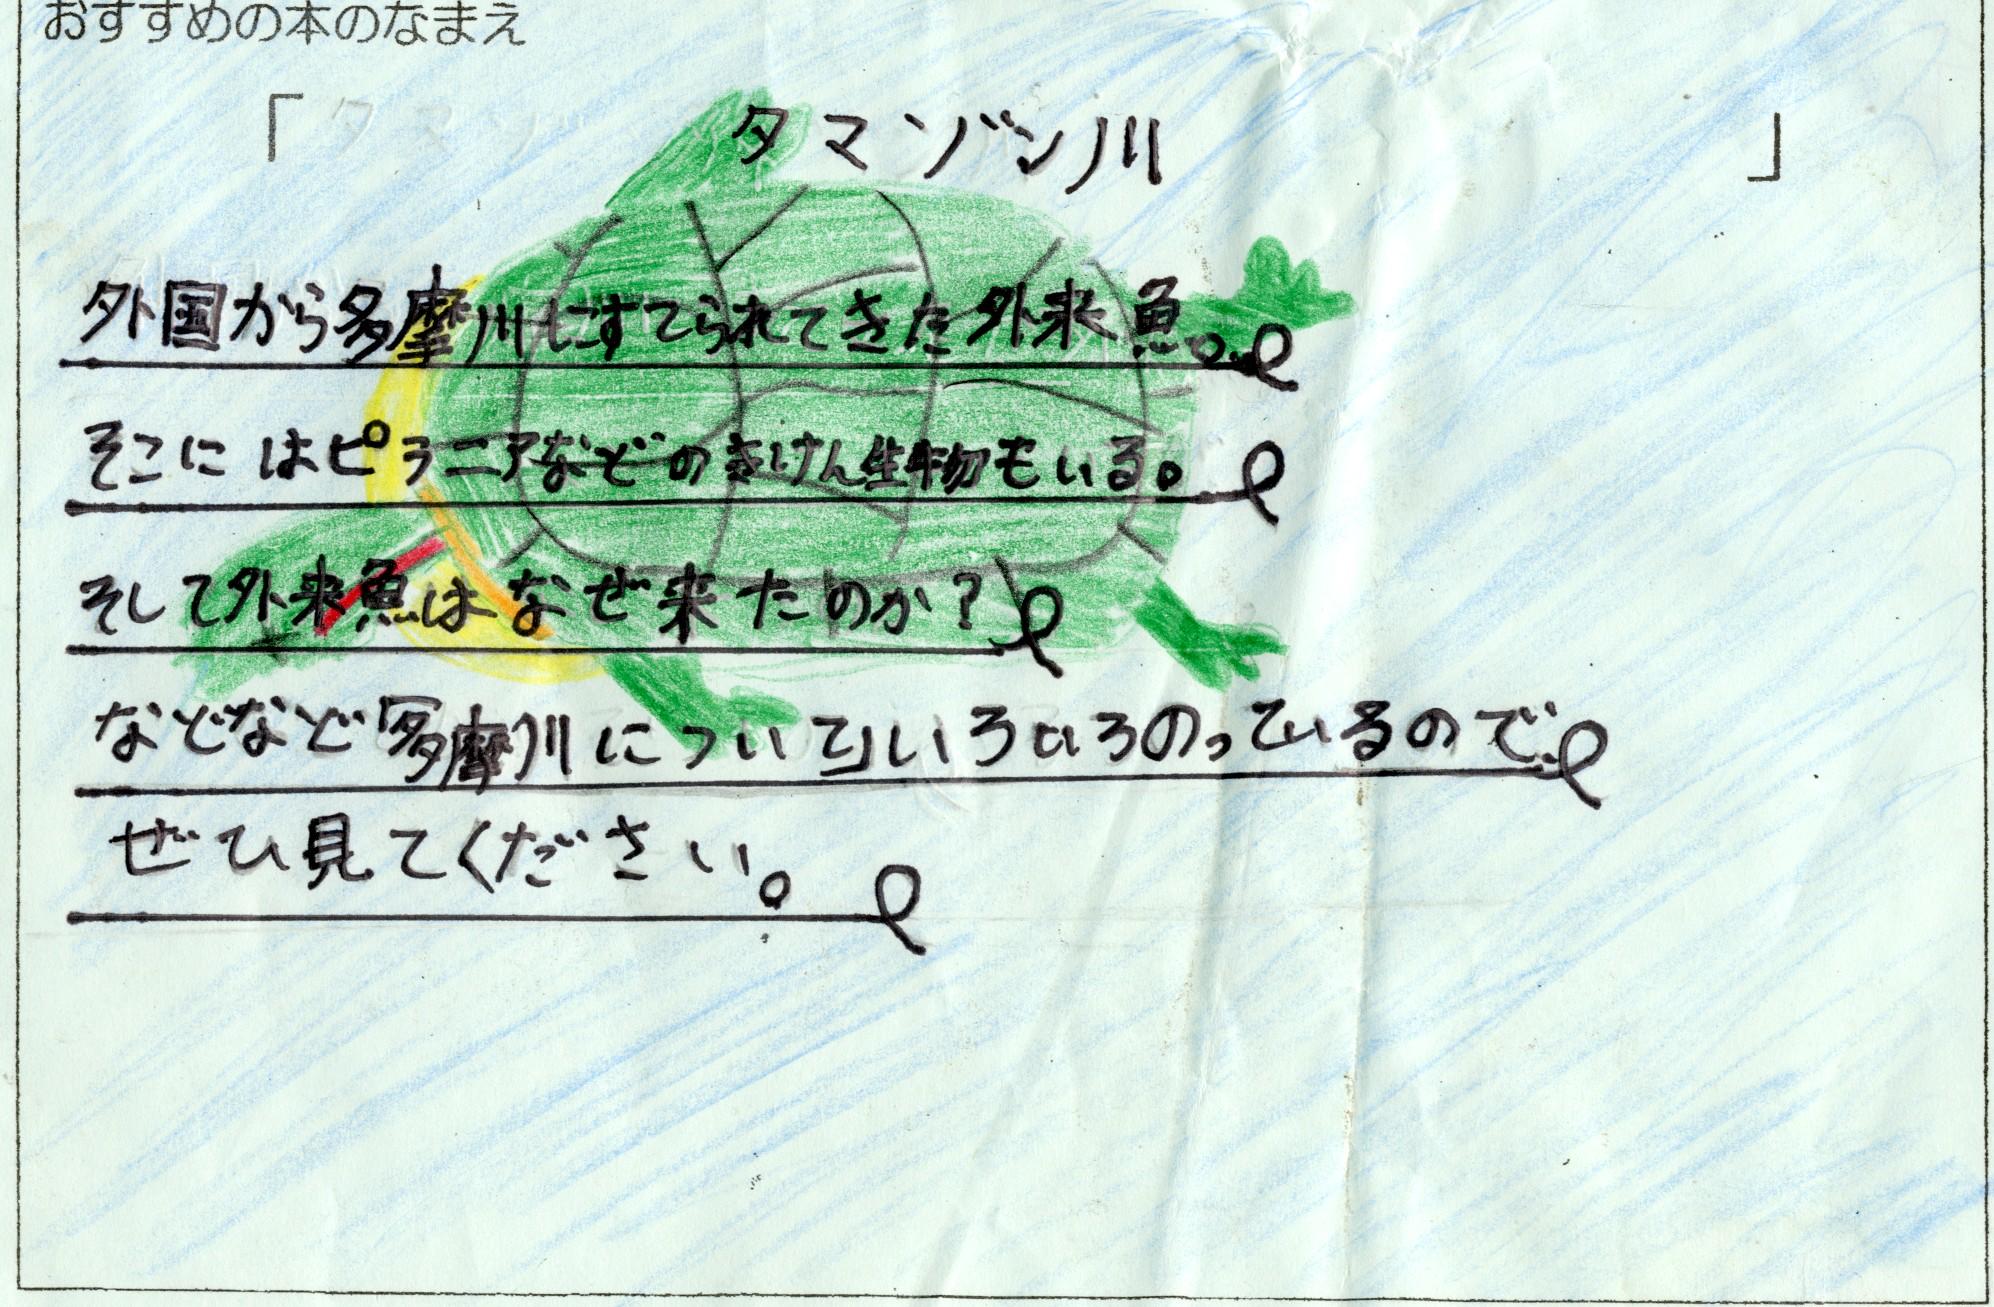 おすすめの本のなまえ
「タマゾン川」
外国から多摩川にすてられてきた外来魚。
そこにはピラニアなどのきけん生物もいる。
そして外来魚はなぜ来たのか?
などなど多摩川についていろいろのっているので
ぜひ見てください。